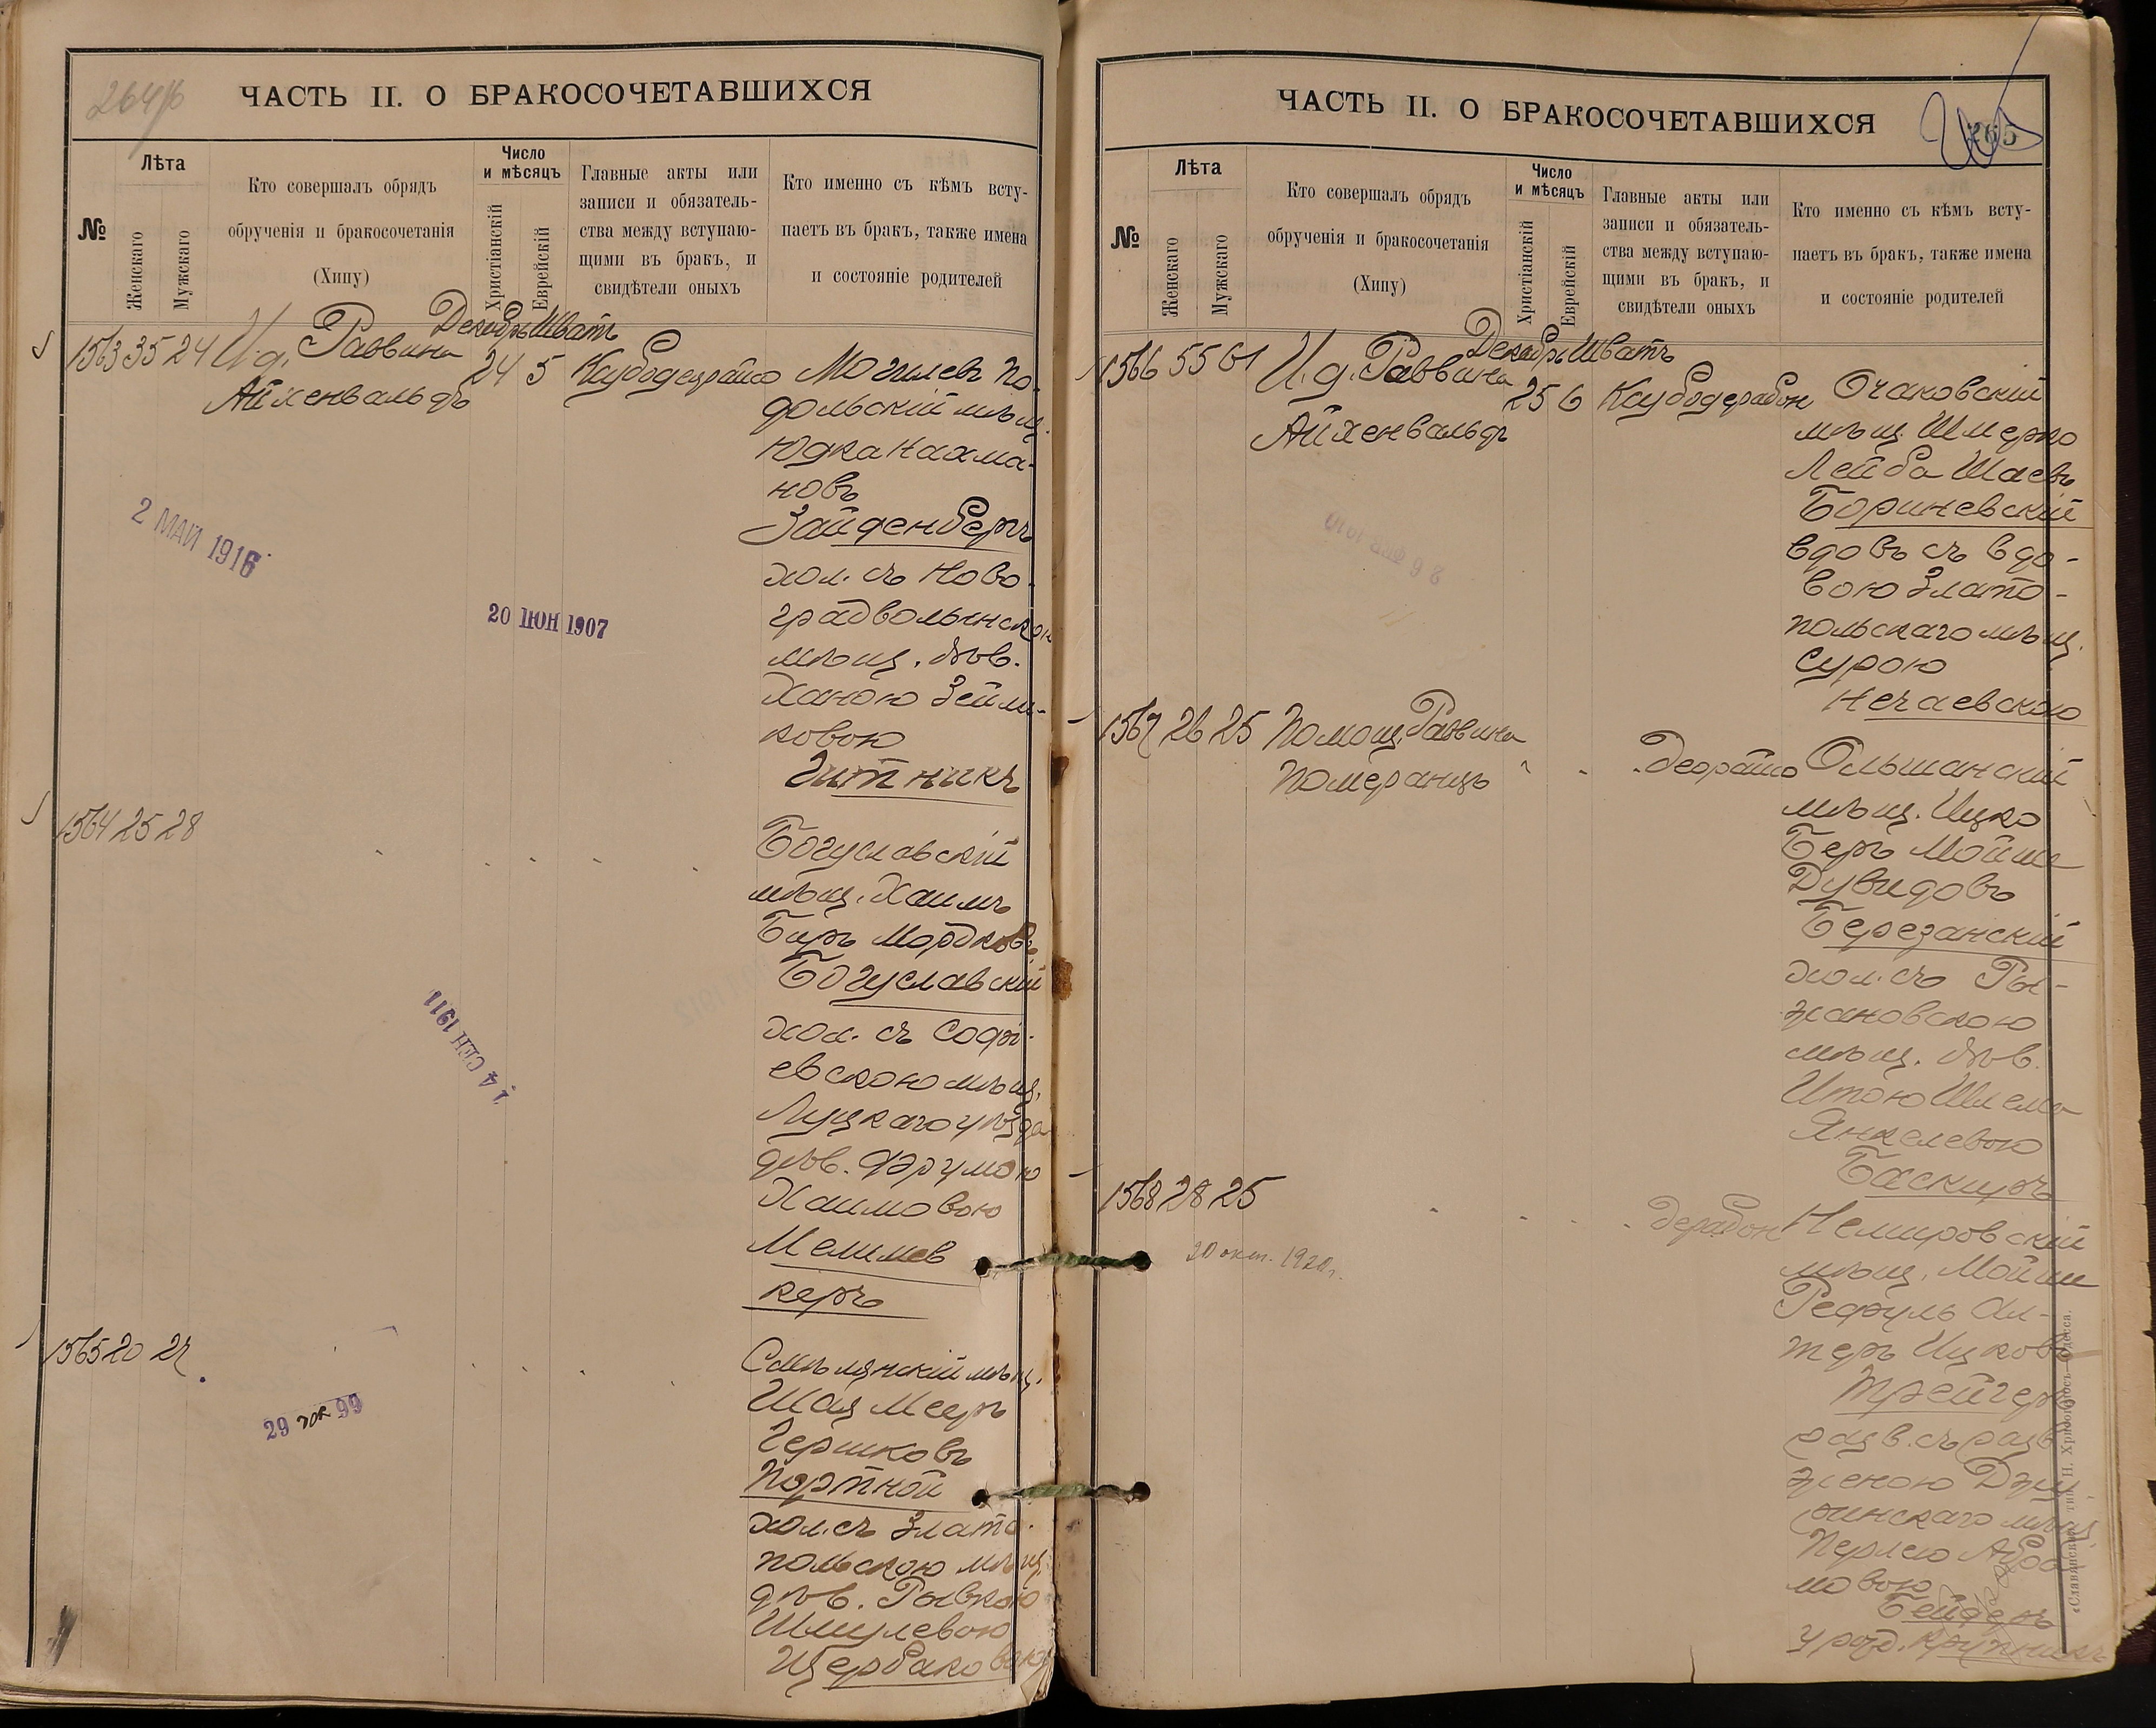 264
ЧАСТЬ II. О БРАКОСОЧЕТАВШИХСЯ
№
Лѣта
Женскаго
Мужскаго
Кто совершалъ обрядъ
обрученія и бракосочетанія
(Хипу)
Число
и мѣсяцъ
Христіанскій
Еврейскій
Главные акты или
записи и обязатель-
ства между вступаю-
щими въ бракъ, и
свидѣтели оныхъ
Кто именно съ кѣмъ всту-
паетъ въ бракъ, также имена
и состояніе родителей
Декабрь Шватъ
1563 35 24 И.д. Раввина 24 5
Айхенвальдъ
Могилев. По-
дольскій мѣщ.
Юдка Нахма-
новъ
Зайденбергъ
хол. съ Ново-
градволынскою
мѣщ. дѣв.
Ханою Зейли-
ковою
Гитникъ
2 МАЙ 1916
20 ІЮН 1907
1564 25 28
Богуславскій
мѣщ. Хаимъ
Беръ Мордковъ
Богуславскій
хол. съ Софі-
евскою мѣщ.
Луцкаго уѣзда
дѣв. Фрумою
Хаимовою
Мелимев
керъ
14 СЕН 1911
1565 20 27
Смѣлянскій мѣщ.
Шая Мееръ
Гершковъ
Портной
хол. съ Злато-
польскою мѣщ.
дѣв. Рывкою
Шмулевою
Щербаковою
29 99
ЧАСТЬ II. О БРАКОСОЧЕТАВШИХСЯ
265
№
Лѣта
Женскаго
Мужскаго
Кто совершалъ обрядъ
обрученія и бракосочетанія
(Хипу)
Число
и мѣсяцъ
Христіанскій
Еврейскій
Главные акты или
записи и обязатель-
ства между вступаю-
щими въ бракъ, и
свидѣтели оныхъ
Кто именно съ кѣмъ всту-
паетъ въ бракъ, также имена
и состояніе родителей
Декабрь Шватъ
1566 55 61 И.д. Раввина 25 6
Айхенвальдъ
Очаковскій
мѣщ. Шмерко
Лейба Шаевъ
Бориневскій
вдовъ съ вдо-
вою Злато-
польскаго мѣщ.
Сурою
Нечаевскою
1567 26 25 Помощ. Раввина
Померанцъ
Деорайсо
Ольшанскій
мѣщ. Ицко
Беръ Мойше
Дувидовъ
Березанскій
хол. съ Ры-
жановскою
мѣщ. дѣв.
Итою Шлема
Янкелевою
Баскиръ
1568 28 25
дерабон
20 окт. 1920г.
Немировскій
мѣщ. Мойше
Рефуль Ал-
теръ Ицковъ
Трейгеръ
разв. съ разв.
женою Джу
ринскаго мѣщ.
Перлею Абра
мовою
Бейдеръ
урожд. Крупникъ
«Славянская» тип. Н. Хрисогелосъ—Одесса.